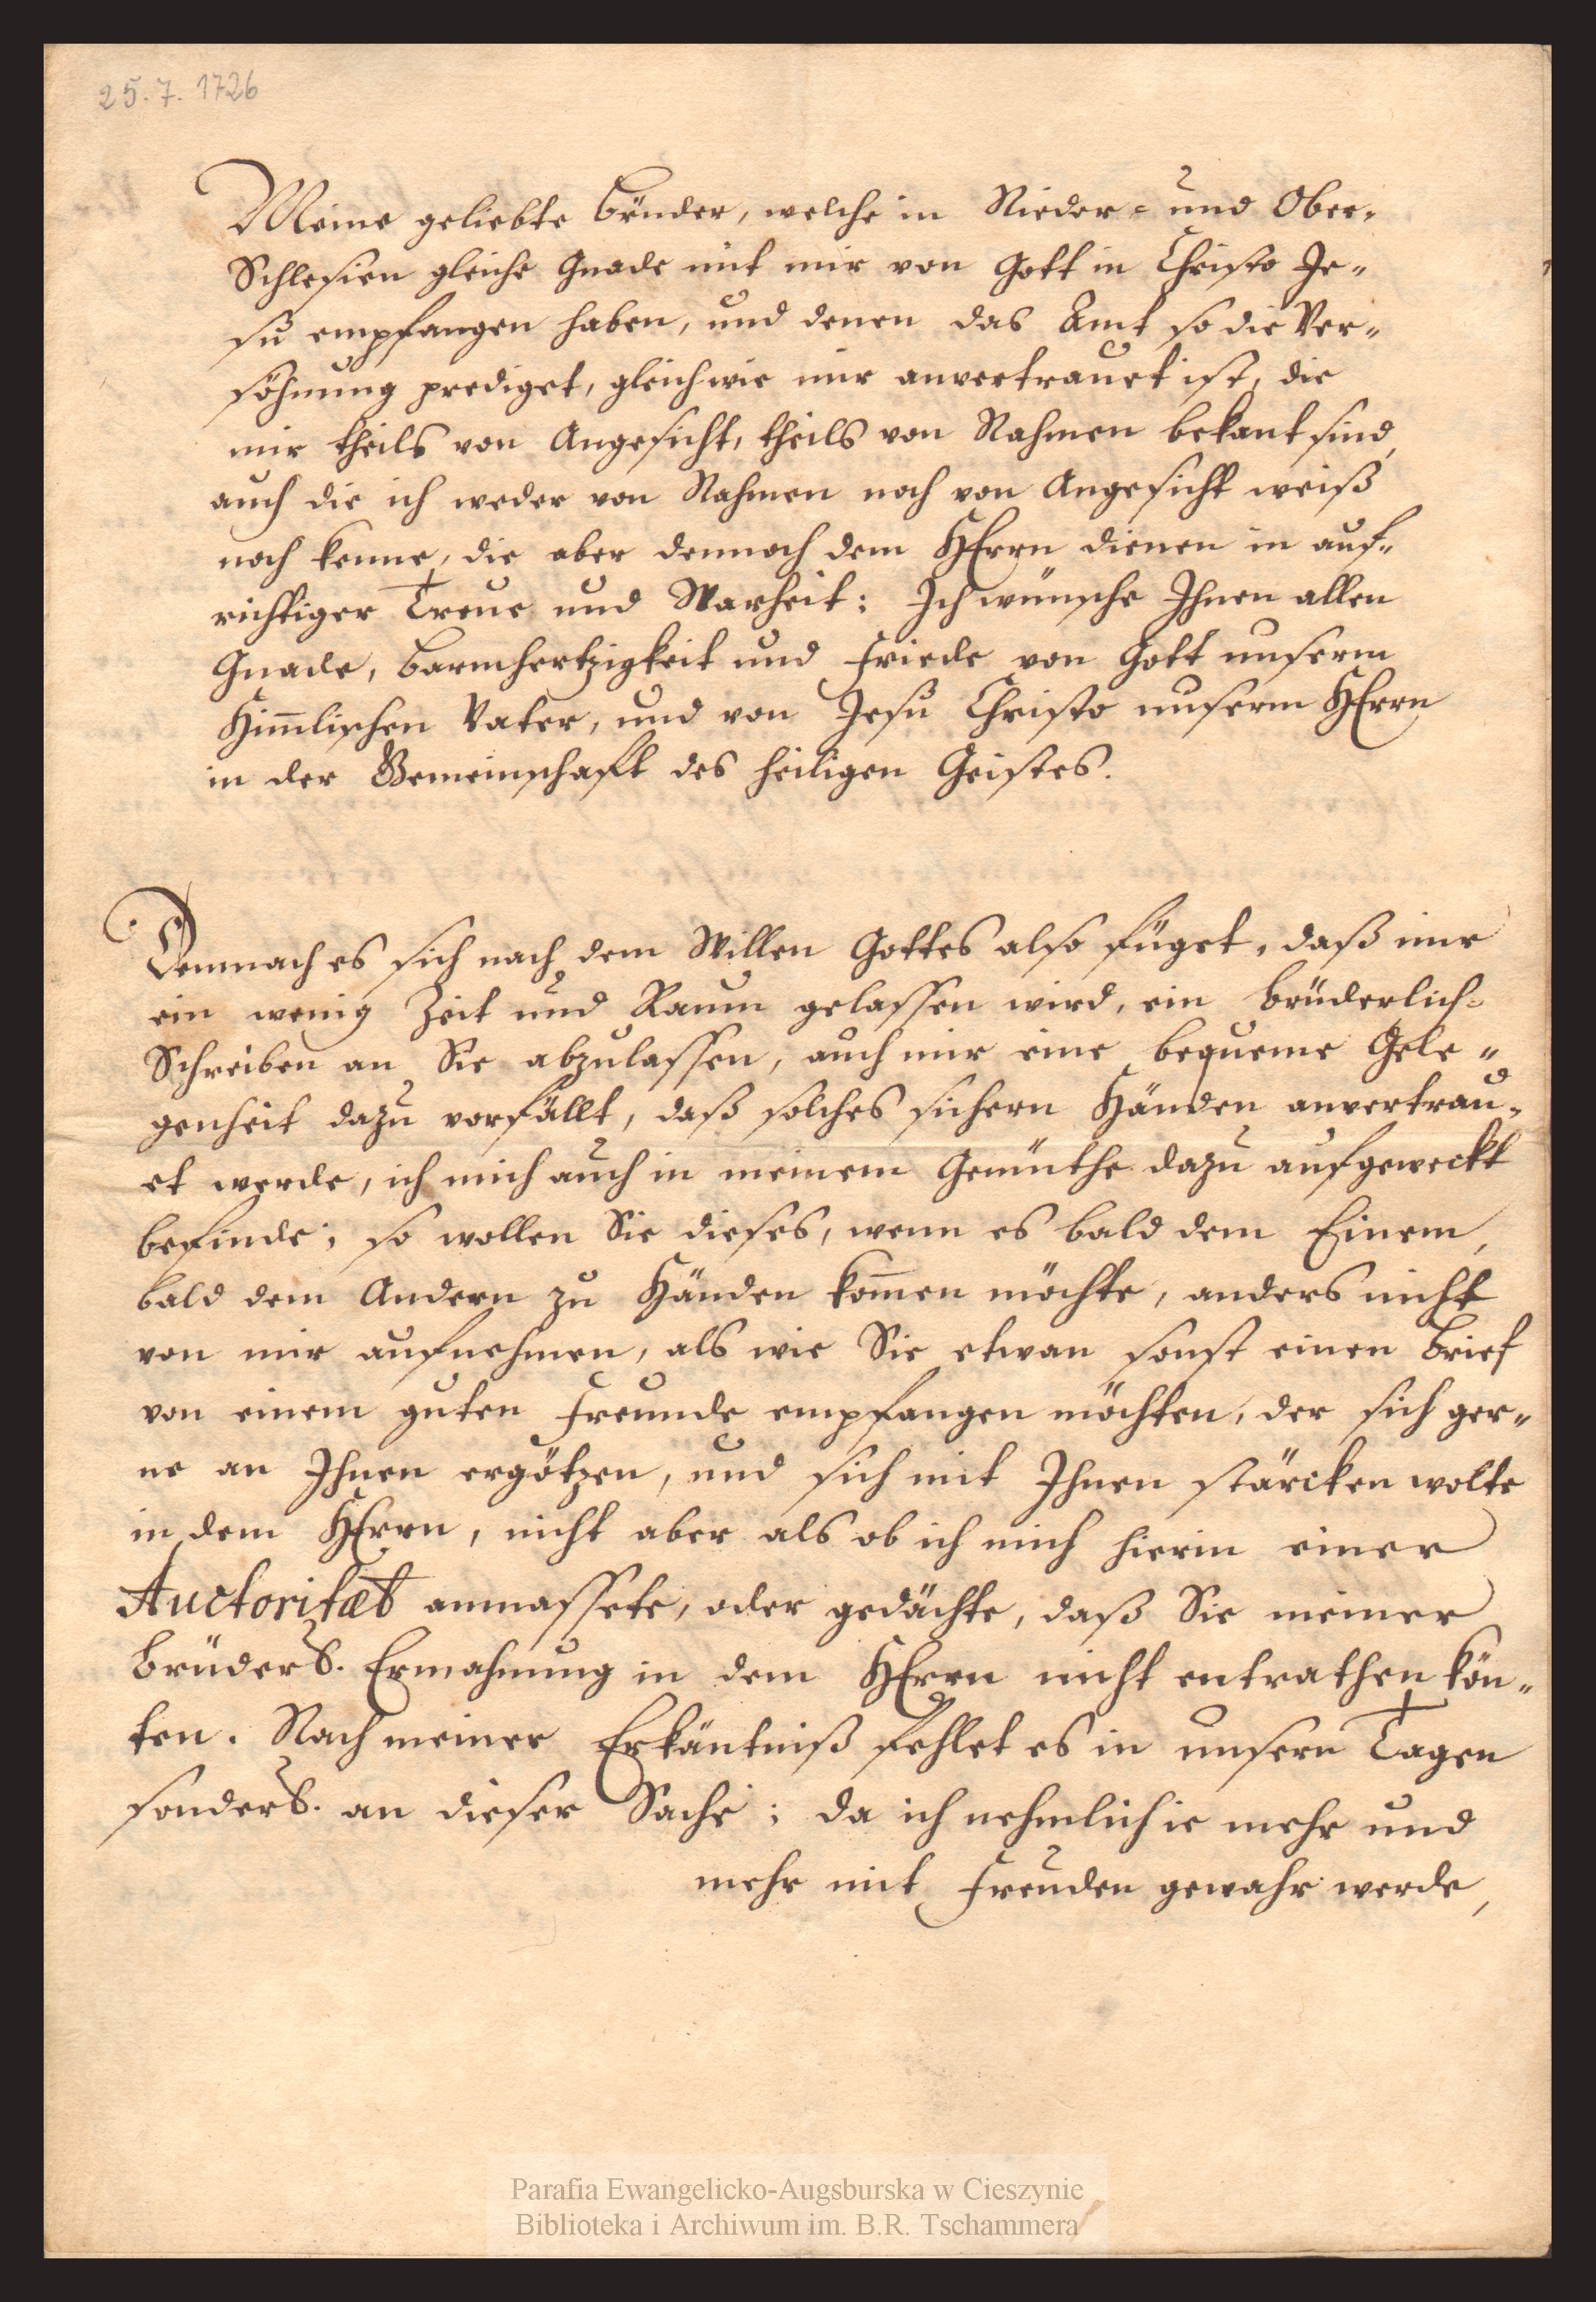 25.7.1726
Meine geliebte Brüder, welche in Nieder- und Ober-
Schlesien gleiche Gnade mit mir von Gott in Christo Je-
su empfangen haben, und denen das Amt so die Ver-
söhnung prediget, gleichwie mir anvertrauet ist, die
mir theils von Angesicht, theils von Nahmen bekant sind,
auch die ich weder von Nahmen noch von Angesicht weiß
noch kenne, die aber dennoch dem HErrn dienen in auf-
richtiger Treue und Warheit: Ich wünsche Ihnen allen
Gnade, Barmhertzigkeit und Friede von Gott unserm
Him̄lischen Vater, und von Jesu Christo unserm HErrn
in der Gemeinschafft des heiligen Geistes.
Demnach es sich nach dem Willen Gottes also füget, daß mir
ein wenig Zeit und Raum gelassen wird, ein brüderlich-
Schreiben an Sie abzulassen, auch mir eine bequeme Gele-
genheit dazu vorfällt, daß solches sichern Händen anvertrau-
et werde, ich mich auch in meinem Gemüthe dazu aufgeweckt
befinde; so wollen Sie dieses, wenn es bald dem Einem,
bald dem Andern zu Händen kom̄en möchte, anders nicht
von mir aufnehmen, als wie Sie etwan sonst einen Brief
von einem guten Freunde empfangen möchten, der sich ger-
ne an Ihnen ergötzen, und sich mit Ihnen stärcken wolte
in dem HErrn, nicht aber als ob ich mich hierin einer
Auctoritæt anmassete, oder gedächte, daß Sie meiner
Brüderl. Ermahnung in dem HErrn nicht entrathen kön-
ten. Nach meiner Erkäntniß fehlet es in unsern Tagen
sonderl. an dieser Sache; da ich nehmlich ie mehr und
mehr mit Freuden gewahr werde,
Parafia Ewangelicko-Augsburska w Cieszynie
Biblioteka i Archiwum im. B.R. Tschammera